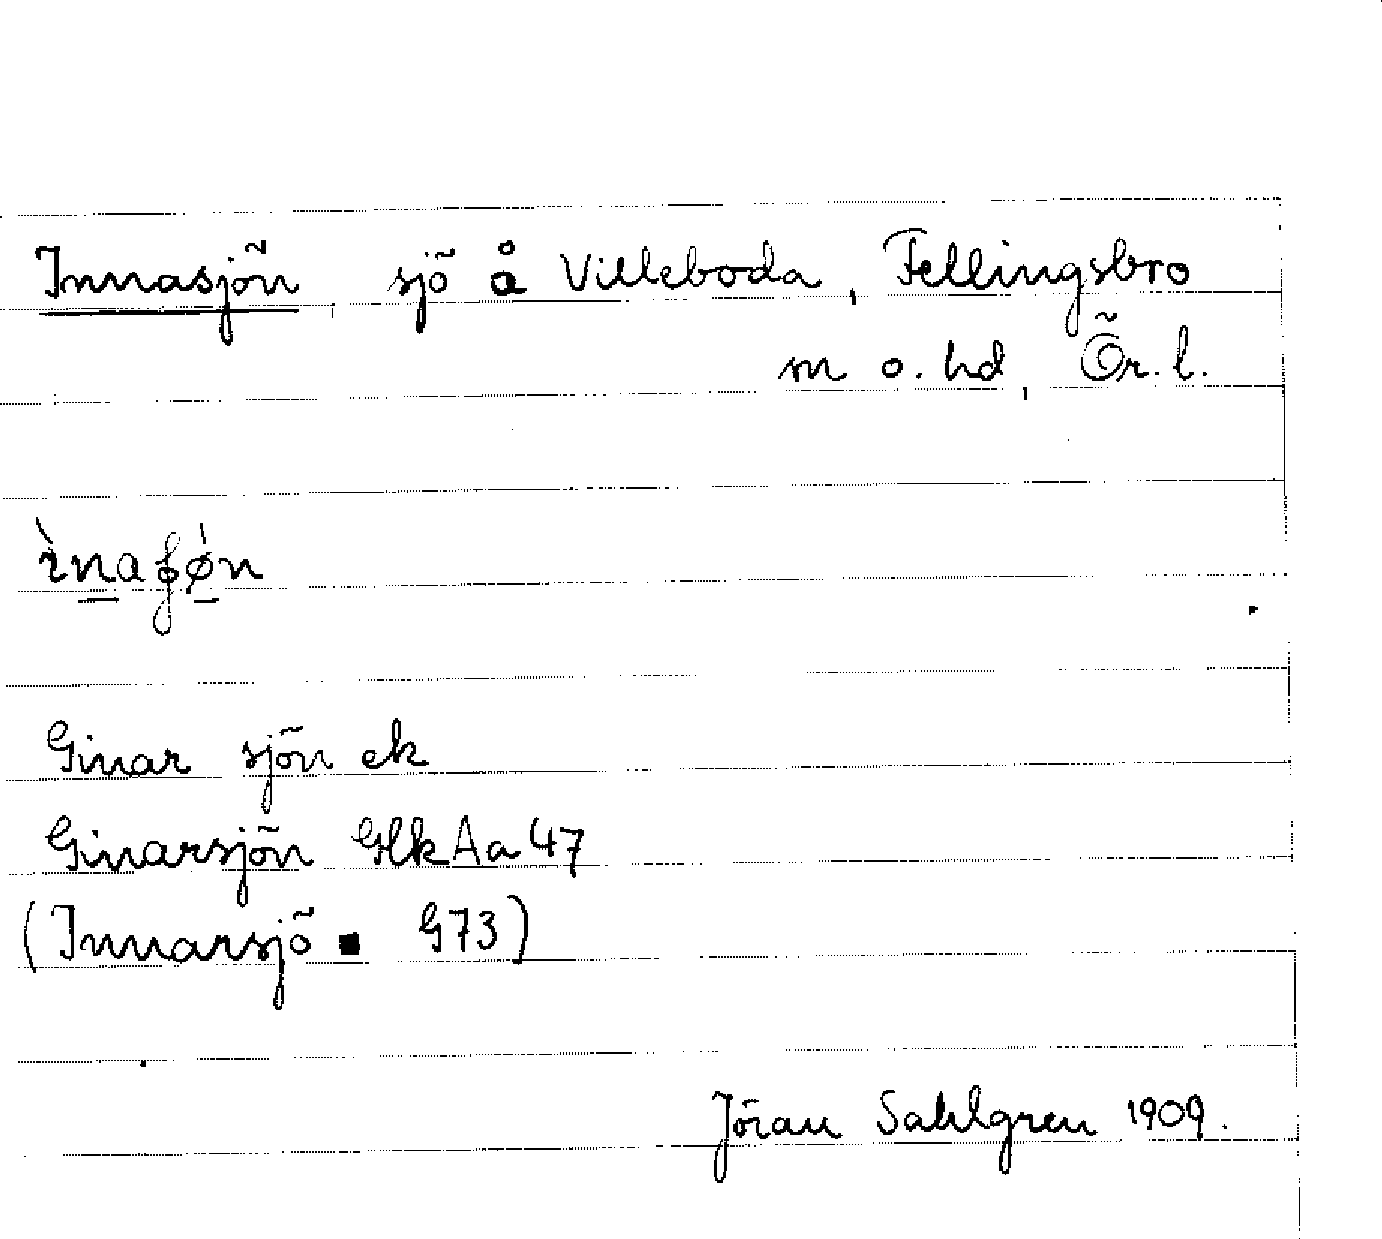 Innasjön, sjö å Villeboda, Fellingsbro
m o. hd, Ör. l.
Ginar sjön ek
Ginarsjön GlkAa47
(Innarsjö G73)
Jöran Sahlgren 1909.